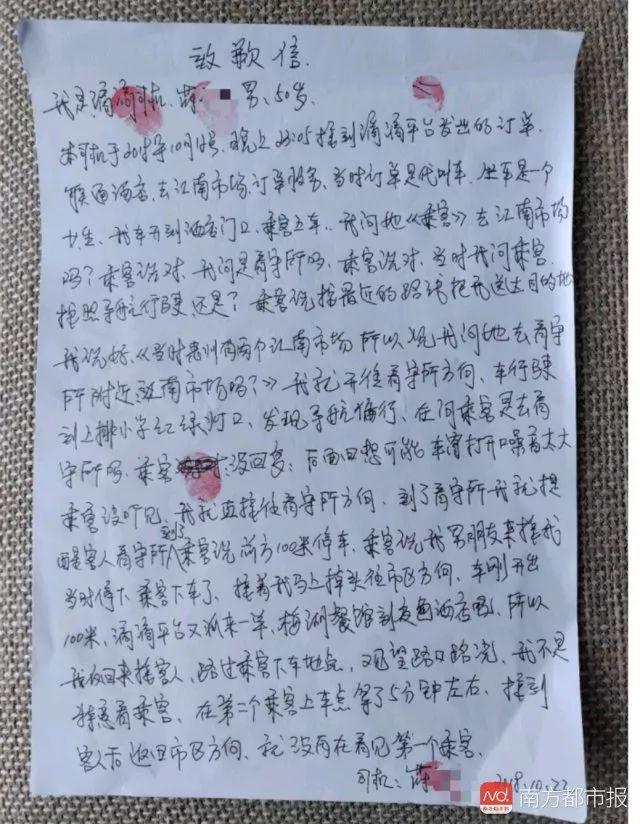 致歉信
我是滴滴司机、 男、50岁、
本司机于2018年10月 号、晚上23:05接到滴滴平台发出的订单、
联通酒店、去江南市场、订单服务、当时订单是代叫车、坐车是一个
女生、我车开到酒店门口、乘客上车、我问她《乘客》去江南市场
吗?乘客说对、我问是看守所吗、乘客说对、当时我问乘客、
按照导航行驶、还是?乘客说按最近的路线把我送达目的地、
我说好、《当时惠州有两个江南市场、所以说我问她去看守
所附近、江南市场吗?》我就开往看守所方向、车行驶
到上排小学红绿灯口、发现导航偏行、在问乘客是去看
守所吗、乘客 没回复;后面回想可能车窗打开噪音太大
乘客没听见、我就直接往看守所方向、到了看守所我就提
醒客人看守所到了、乘客说前方100米停车、乘客说我男朋友来接我
当时停下乘客下车了、接着我马上掉头往市区方向、车刚开出
100米、滴滴平台又派来一单、梅湖餐馆到 酒店、所以
我返回来接客人、路过乘客下车地点、观望路口路况、我不是
特意看乘客、在第二个乘客上车点等了5分钟左右、接到
客人后返回市区方向、就没再在看见第一个乘客、
司机: 2018.10.22
南方都市报